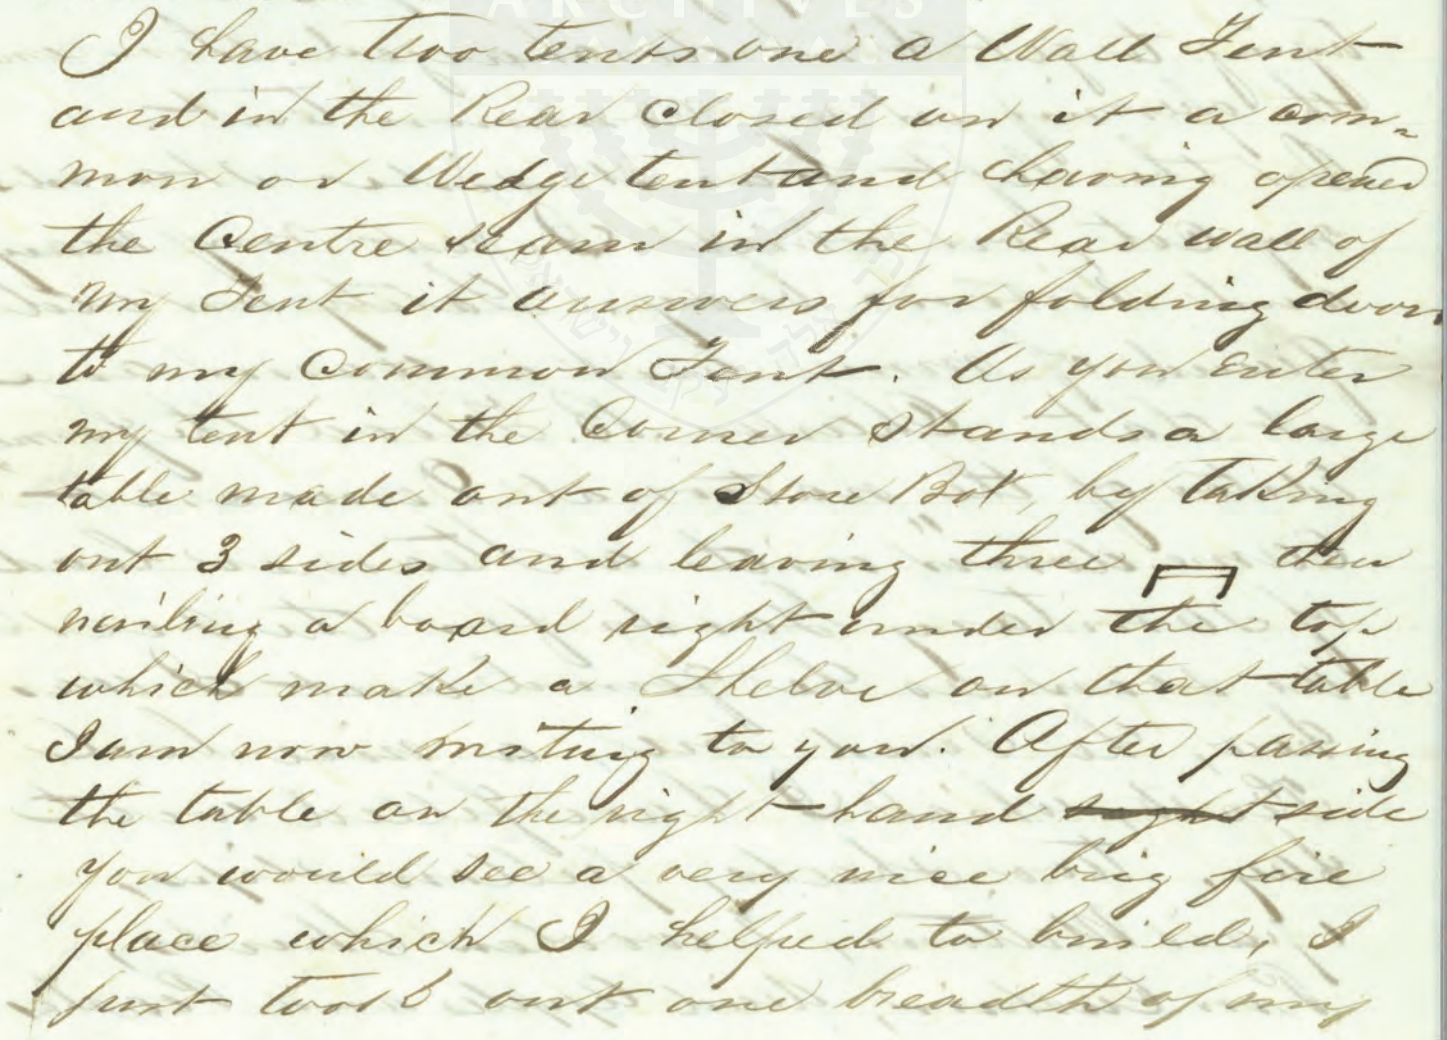 ARCHIVES
I have two tents one a Wall Tent
and in the Rear closed on it a com=
mon or Wedge tent and having opened
the Centre seam in the Rear wall of
my Tent it answers for folding doors
to my Common Tent. As you enter
my tent in the Corner stands a large
table made out of Store Box, by taking
out 3 sides and leaving three then
nailing a board right under the top
which make a Shelve on that table
I am now writing to you. After passing
the table on the right hand right side
you would see a very nice big fire
place which I helped to build, I
just took out one breadth of my